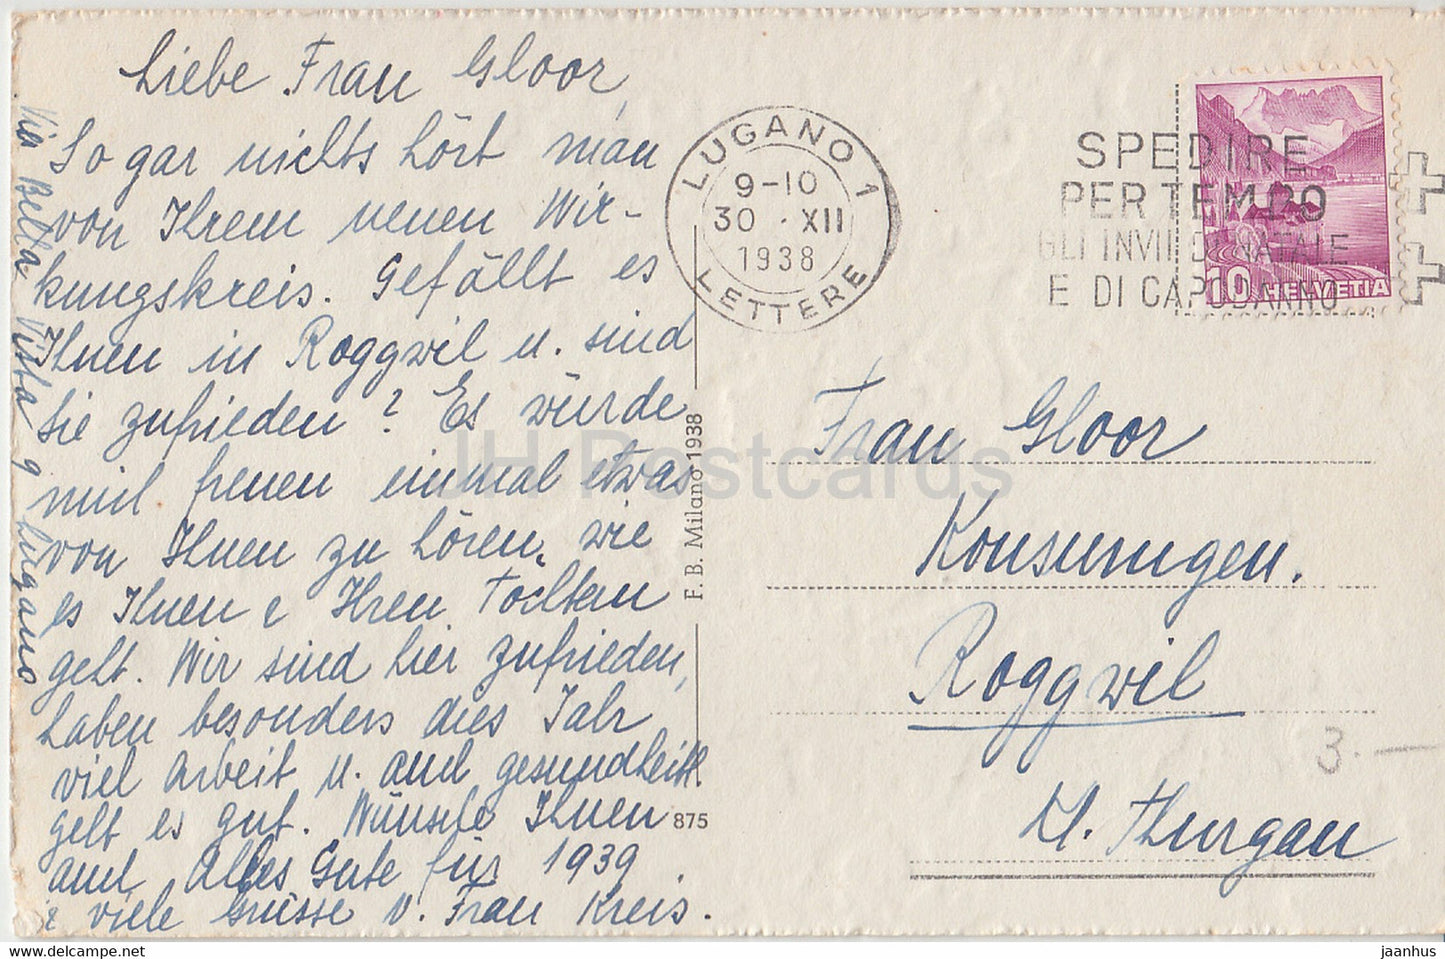 Liebe Frau Gloor,
So gar nichts hört man
von Ihrem neuen Wir-
kungskreis. Gefällt es
Ihnen in Roggwil u. sind
Sie zufrieden? Es würde
mich freuen einmal etwas
von Ihnen zu hören, wie
es Ihnen & Ihren Töchtern
geht. Wir sind hier zufrieden,
haben besonders dies Jahr
viel Arbeit u. auch gesundheitl.
geht es gut. Wünsche Ihnen
auch Alles Gute für 1939
& viele Grüsse v. Frau Kreis.
Via Bella Vista 9 Lugano
F. B. Milano 1938
875
LUGANO 1
9-10
30 . XII
1938
LETTERE
SPEDIRE
PER TEMPO
GLI INVII DI NATALE
E DI CAPODANNO
10 HELVETIA
Frau Gloor
Konsumgen.
Roggwil
Kt. Thurgau
3.—
JH Postcards
www.delcampe.net
jaanhus